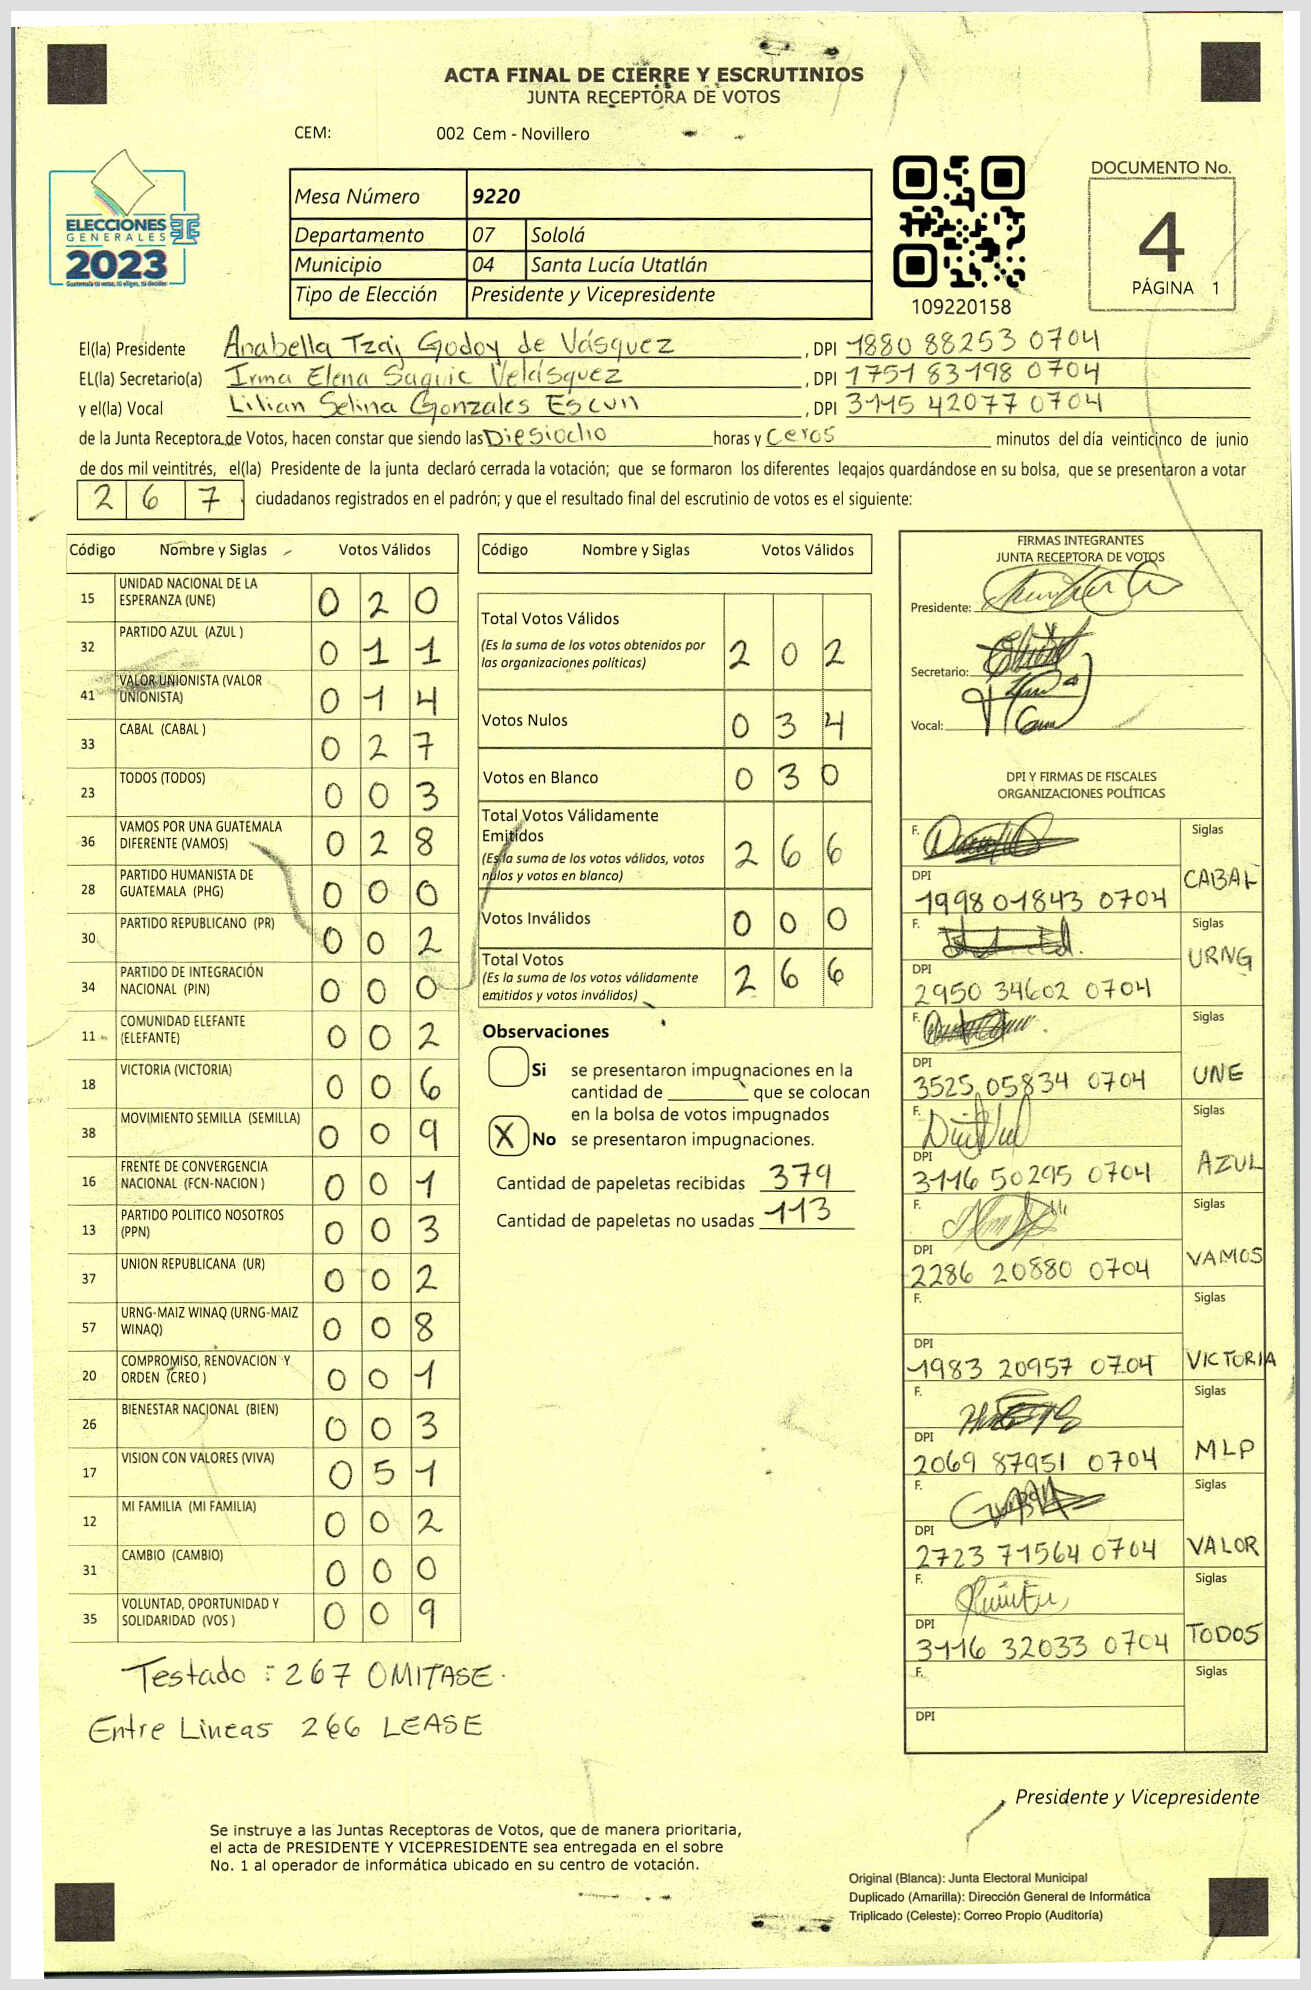 ACTA FINAL DE CIERRE Y ESCRUTINIOS
JUNTA RECEPTORA DE VOTOS
CEM: 002 Cem - Novillero
ELECCIONES
GENERALES
2023
Mesa Número 9220
Departamento 07 Sololá
Municipio 04 Santa Lucía Utatlán
Tipo de Elección Presidente y Vicepresidente
109220158
DOCUMENTO No.
4
PÁGINA 1
El(la) Presidente Anabella Tzaj Godoy de Vásquez, DPI 1880 88253 0704
EL(la) Secretario(a) Irma Elena Saquic Velásquez, DPI 1751 83198 0704
y el(la) Vocal Lilian Selina Gonzales Escun, DPI 3115 42077 0704
de la Junta Receptora de Votos, hacen constar que siendo las Diesiocho horas y Ceros minutos del día veinticinco de junio
de dos mil veintitrés, el(la) Presidente de la junta declaró cerrada la votación; que se formaron los diferentes legajos quardándose en su bolsa, que se presentaron a votar
2 6 7 ciudadanos registrados en el padrón; y que el resultado final del escrutinio de votos es el siguiente:
Código Nombre y Siglas Votos Válidos
15 UNIDAD NACIONAL DE LA ESPERANZA (UNE) 0 2 0
32 PARTIDO AZUL (AZUL ) 0 1 1
41 VALOR UNIONISTA (VALOR UNIONISTA) 0 1 4
33 CABAL (CABAL ) 0 2 7
23 TODOS (TODOS) 0 0 3
36 VAMOS POR UNA GUATEMALA DIFERENTE (VAMOS) 0 2 8
28 PARTIDO HUMANISTA DE GUATEMALA (PHG) 0 0 0
30 PARTIDO REPUBLICANO (PR) 0 0 2
34 PARTIDO DE INTEGRACIÓN NACIONAL (PIN) 0 0 0
11 COMUNIDAD ELEFANTE (ELEFANTE) 0 0 2
18 VICTORIA (VICTORIA) 0 0 6
38 MOVIMIENTO SEMILLA (SEMILLA) 0 0 9
16 FRENTE DE CONVERGENCIA NACIONAL (FCN-NACION ) 0 0 1
13 PARTIDO POLITICO NOSOTROS (PPN) 0 0 3
37 UNION REPUBLICANA (UR) 0 0 2
57 URNG-MAIZ WINAQ (URNG-MAIZ WINAQ) 0 0 8
20 COMPROMISO, RENOVACION Y ORDEN (CREO ) 0 0 1
26 BIENESTAR NACIONAL (BIEN) 0 0 3
17 VISION CON VALORES (VIVA) 0 5 1
12 MI FAMILIA (MI FAMILIA) 0 0 2
31 CAMBIO (CAMBIO) 0 0 0
35 VOLUNTAD, OPORTUNIDAD Y SOLIDARIDAD (VOS ) 0 0 9
Testado : 267 OMITASE.
Entre Lineas 266 LEASE
Código Nombre y Siglas Votos Válidos
Total Votos Válidos
(Es la suma de los votos obtenidos por las organizaciones políticas) 2 0 2
Votos Nulos 0 3 4
Votos en Blanco 0 3 0
Total Votos Válidamente Emitidos
(Es la suma de los votos válidos, votos nulos y votos en blanco) 2 6 6
Votos Inválidos 0 0 0
Total Votos
(Es la suma de los votos válidamente emitidos y votos inválidos) 2 6 6
Observaciones
Si se presentaron impugnaciones en la
cantidad de ________ que se colocan
en la bolsa de votos impugnados
X No se presentaron impugnaciones.
Cantidad de papeletas recibidas 379
Cantidad de papeletas no usadas 113
FIRMAS INTEGRANTES
JUNTA RECEPTORA DE VOTOS
Presidente:
Secretario:
Vocal:
DPI Y FIRMAS DE FISCALES
ORGANIZACIONES POLÍTICAS
F. Siglas
DPI 1998 01843 0704 CABAL
F. Siglas
DPI 2950 34602 0704 URNG
F. Siglas
DPI 3525 05834 0704 UNE
F. Siglas
DPI 3116 50295 0704 AZUL
F. Siglas
DPI 2286 20880 0704 VAMOS
F. Siglas
DPI 1983 20957 0704 VICTORIA
F. Siglas
DPI 2069 87951 0704 MLP
F. Siglas
DPI 2723 71564 0704 VALOR
F. Siglas
DPI 3116 32033 0704 TODOS
F. Siglas
DPI
Presidente y Vicepresidente
Se instruye a las Juntas Receptoras de Votos, que de manera prioritaria,
el acta de PRESIDENTE Y VICEPRESIDENTE sea entregada en el sobre
No. 1 al operador de informática ubicado en su centro de votación.
Original (Blanca): Junta Electoral Municipal
Duplicado (Amarilla): Dirección General de Informática
Triplicado (Celeste): Correo Propio (Auditoría)